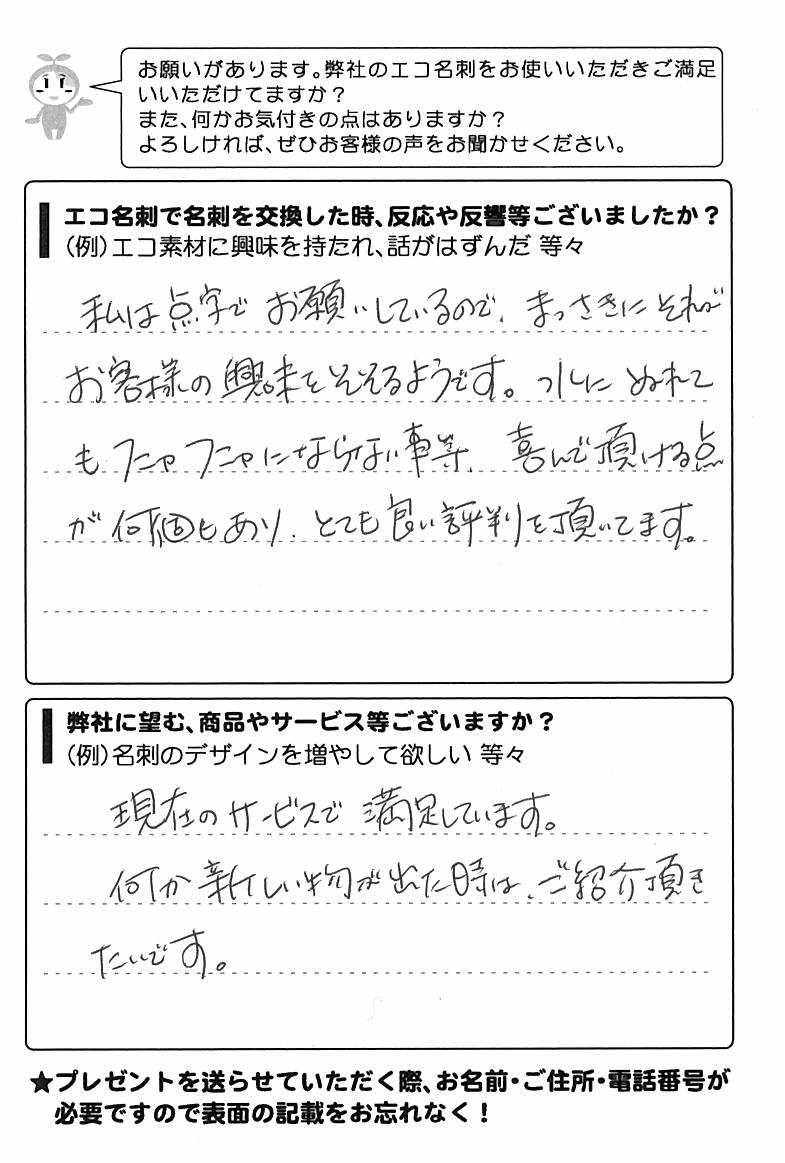 お願いがあります。弊社のエコ名刺をお使いいただきご満足
いいただけてますか？
また、何かお気付きの点はありますか？
よろしければ、ぜひお客様の声をお聞かせください。
エコ名刺で名刺を交換した時、反応や反響等ございましたか？
（例）エコ素材に興味を持たれ、話がはずんだ 等々
私は点字でお願いしているので、まっさきにそれが
お客様の興味をそそるようです。水にぬれて
もフニャフニャにならない事等、喜んで頂ける点
が何個もあり、とても良い評判を頂いてます。
弊社に望む、商品やサービス等ございますか？
（例）名刺のデザインを増やして欲しい 等々
現在のサービスで満足しています。
何か新しい物が出た時は、ご紹介頂き
たいです。
★プレゼントを送らせていただく際、お名前・ご住所・電話番号が
必要ですので表面の記載をお忘れなく！